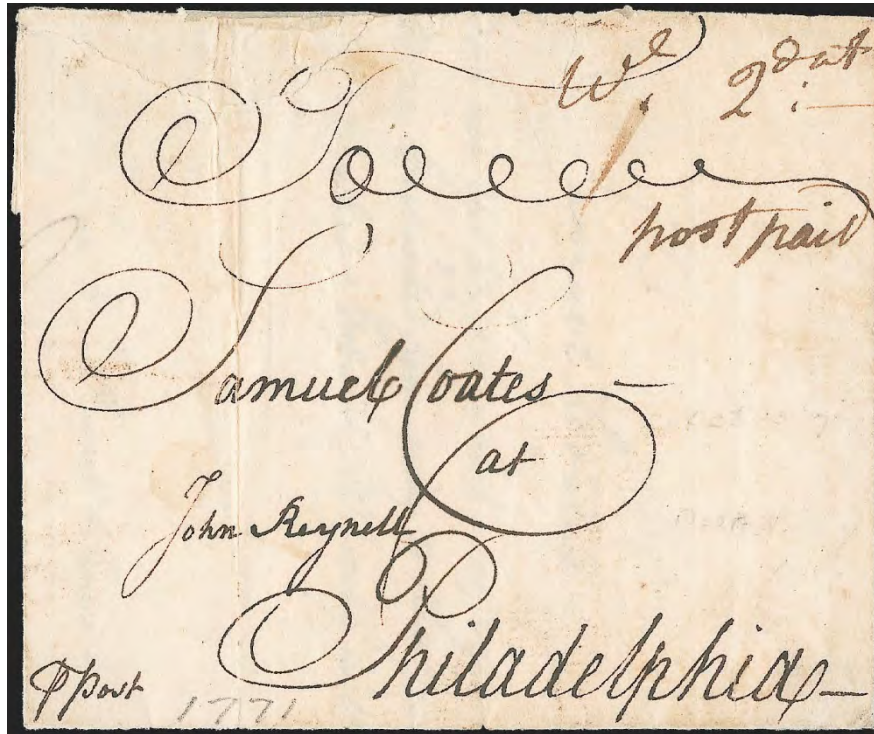 To
2 dwt
post paid
Samuel Coates
at
John Reynell
Philadelphia
℘ Post
1771